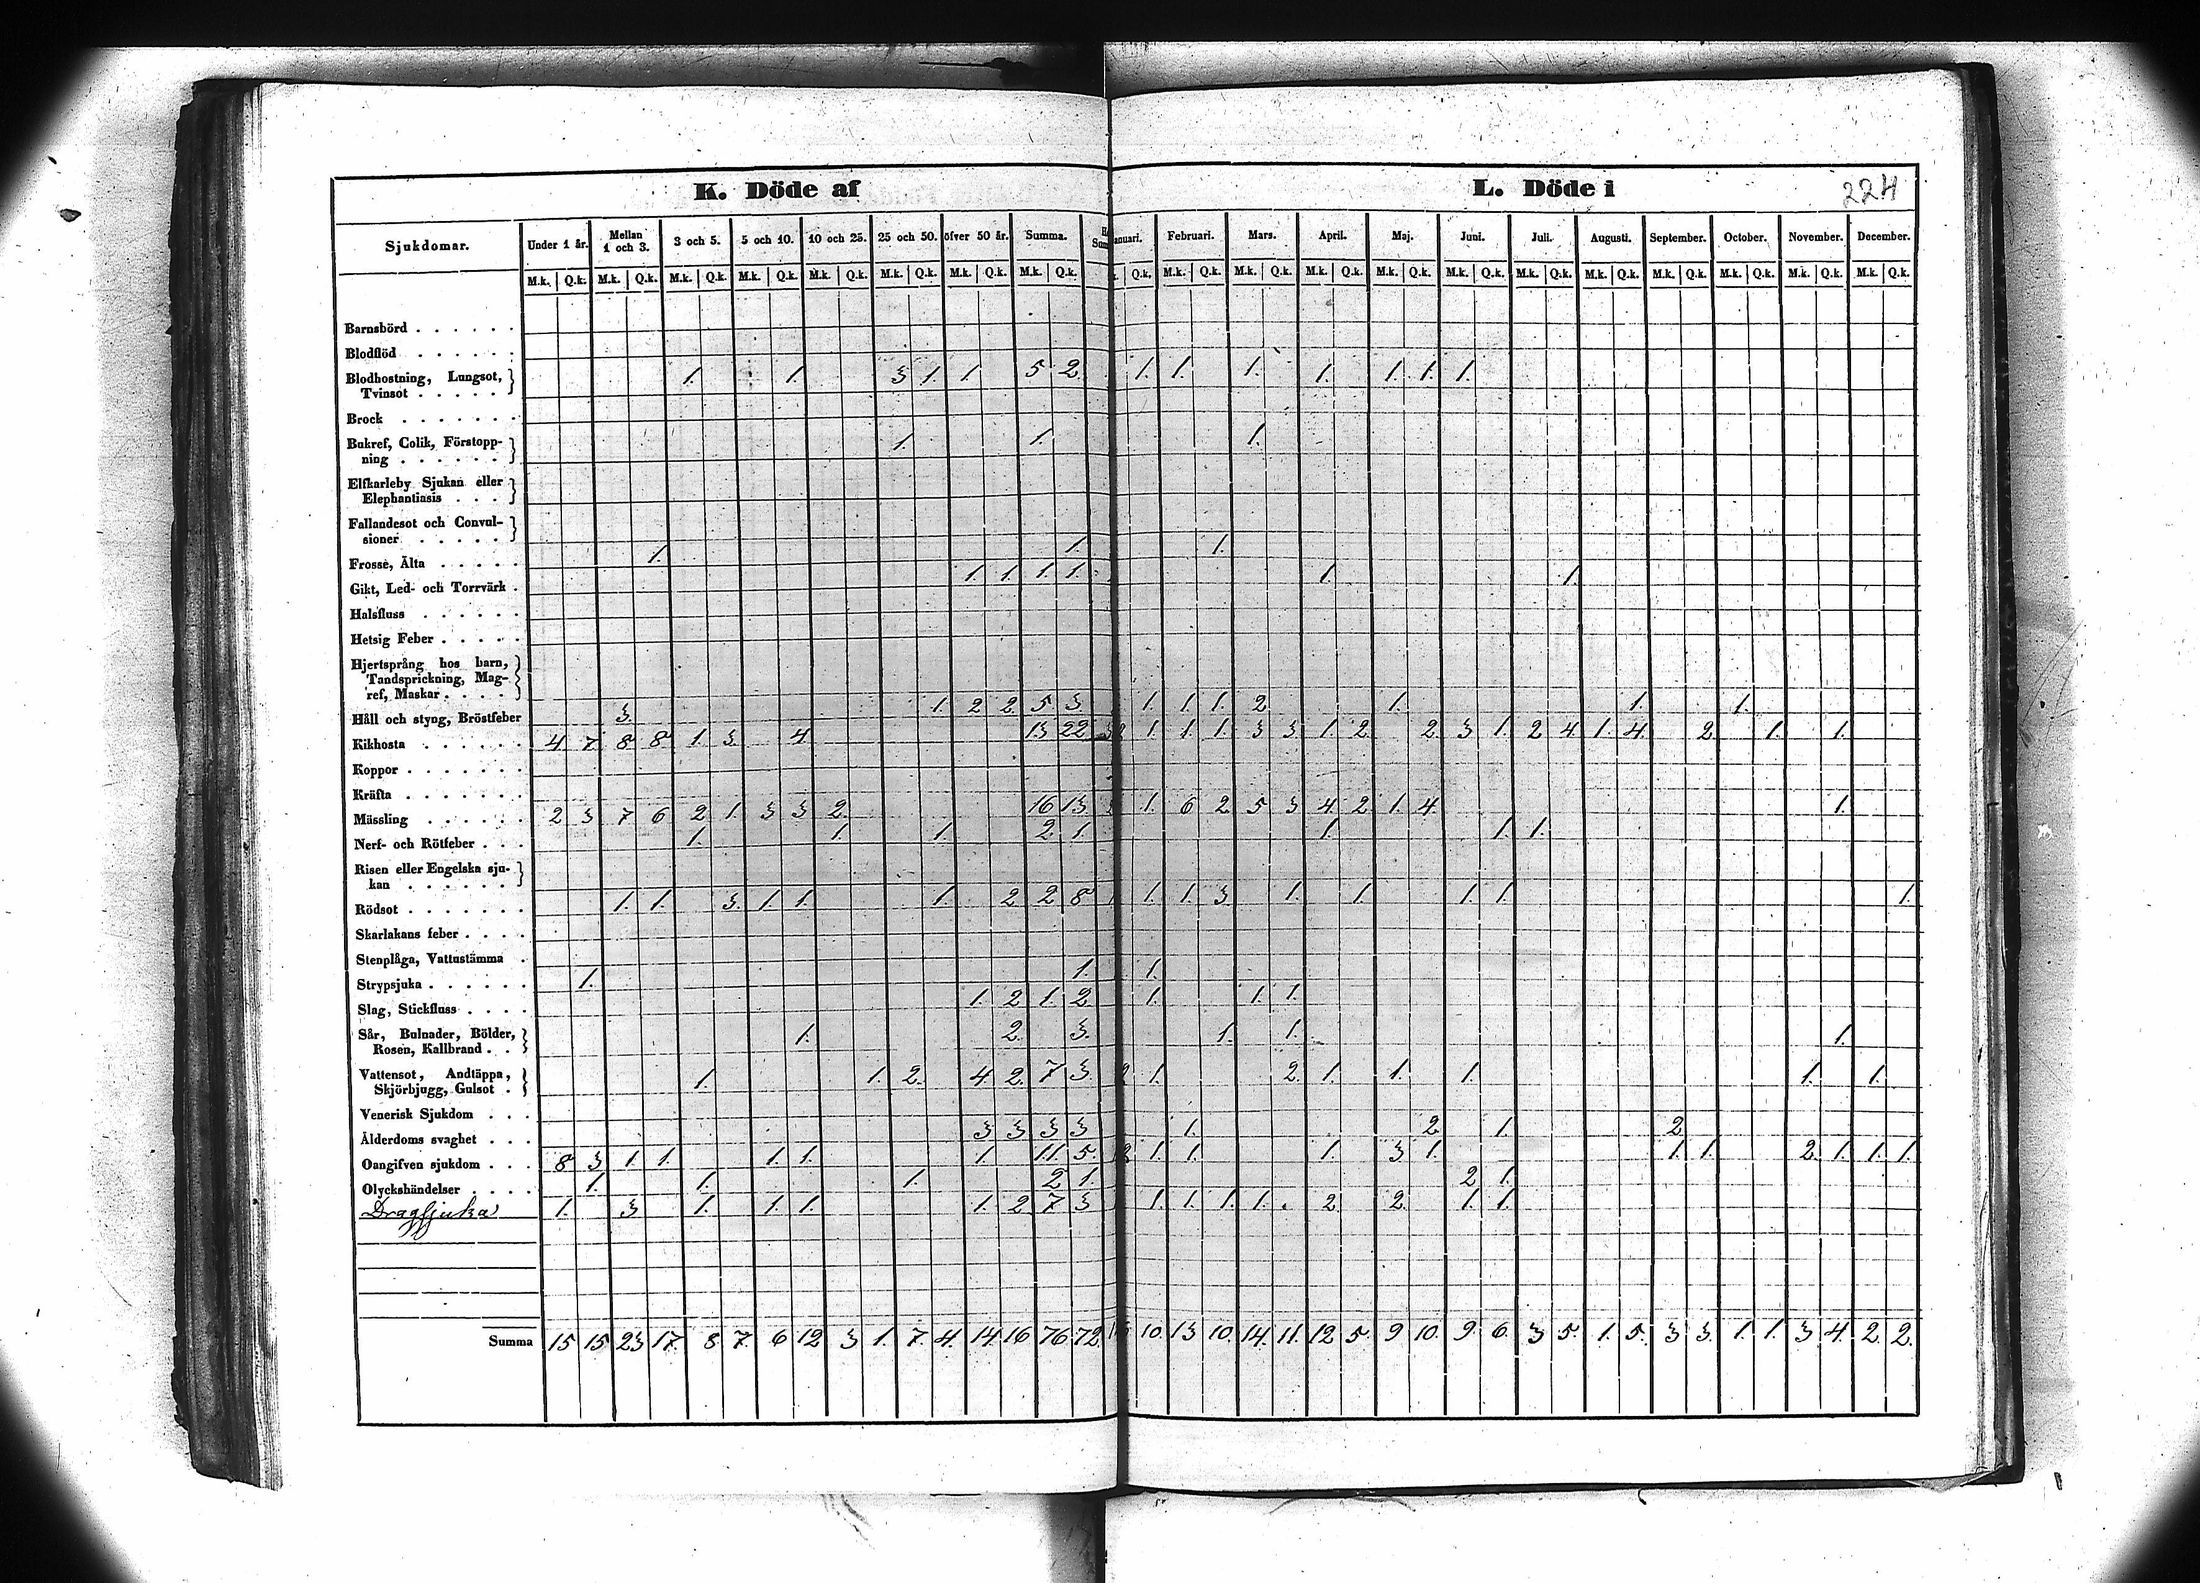 K. Döde af
L. Döde i
224
Sjukdomar. Under 1 år. Mellan 1 och 3. 3 och 5. 5 och 10. 10 och 25. 25 och 50. öfver 50 år. Summa. Februari. Mars. April. Maj. Juni. Juli. Augusti. September. October. November. December.
M.k. Q.k. M.k. Q.k. M.k. Q.k. M.k. Q.k. M.k. Q.k. M.k. Q.k. M.k. Q.k. M.k. Q.k. Q.k. M.k. Q.k. M.k. Q.k. M.k. Q.k. M.k. Q.k. M.k. Q.k. M.k. Q.k. M.k. Q.k. M.k. Q.k. M.k. Q.k. M.k. Q.k. M.k. Q.k.
Barnsbörd . . . . . .
Blodflöd . . . . . .
Blodhostning, Lungsot,
Tvinsot . . . . . 1. 1. 3 1. 1. 5 2. 1. 1. 1. 1. 1. 1. 1.
Brock . . . . . .
Bukref, Colik, Förstopp-
ning . . . . . . 1. 1. 1.
Elfkarleby Sjukan eller
Elephantiasis . . .
Fallandesot och Convul-
sioner . . . . .
Frosse, Älta . . . . . 1. 1. 1.
Gikt, Led- och Torrvärk . 1. 1. 1. 1. 1. 1.
Halsfluss . . . . . .
Hetsig Feber . . . . .
Hjertsprång hos barn,
Tandsprickning, Mag-
ref, Maskar . . . .
Håll och styng, Bröstfeber 3. 1. 2 2. 5 3 1. 1. 1. 2 1. 1. 1.
Kikhosta . . . . . . 4 7 8 8 1 3. 4 13 22 1. 1. 1. 3 3. 1. 2 2. 3 1. 2 4 1. 4. 2. 1. 1.
Koppor . . . . . . .
Kräfta . . . . . . .
Mässling . . . . . . 2 3 7 6 2 1. 3 3 2. 16 13 1. 6 2 5 3 4 2 1. 4. 1.
Nerf- och Rötfeber . . . 1. 1. 1. 2. 1. 1. 1. 1.
Risen eller Engelska sju-
kan . . . . . .
Rödsot . . . . . . . 1. 1. 3. 1. 1. 1. 2 2 8 1. 1. 3. 1. 1. 1. 1. 1.
Skarlakans feber . . . .
Stenplåga, Vattustämma .
Strypsjuka . . . . . . 1. 1. 1.
Slag, Stickfluss . . . . 1. 2 1. 2 1. 1. 1.
Sår, Bulnader, Bölder,
Rosen, Kallbrand . . 1. 2. 3. 1. 1. 1.
Vattensot, Andtäppa,
Skjörbjugg, Gulsot . 1. 1. 2. 4 2. 7 3. 2 1. 2. 1. 1. 1. 1. 1.
Venerisk Sjukdom . . .
Ålderdoms svaghet . . . 3 3 3 3 1. 2. 1. 2.
Oangifven sjukdom . . . 8 3 1. 1. 1. 1. 1. 11 5. 2 1. 1. 1. 3 1. 1. 1. 2. 1. 1. 1.
Olyckshändelser . . . . 1. 1. 1. 2 1. 2 1.
Dragsjuka 1. 3. 1. 1. 1. 1. 2 7 3 1. 1. 1. 1. 2. 2. 1. 1.
Summa 15 15 23 17. 8 7. 6 12 3 1. 7. 4. 14. 16 76 72. 10. 13 10. 14. 11. 12 5. 9 10. 9. 6. 3 5. 1. 5. 3 3. 1. 1. 3 4. 2. 2.